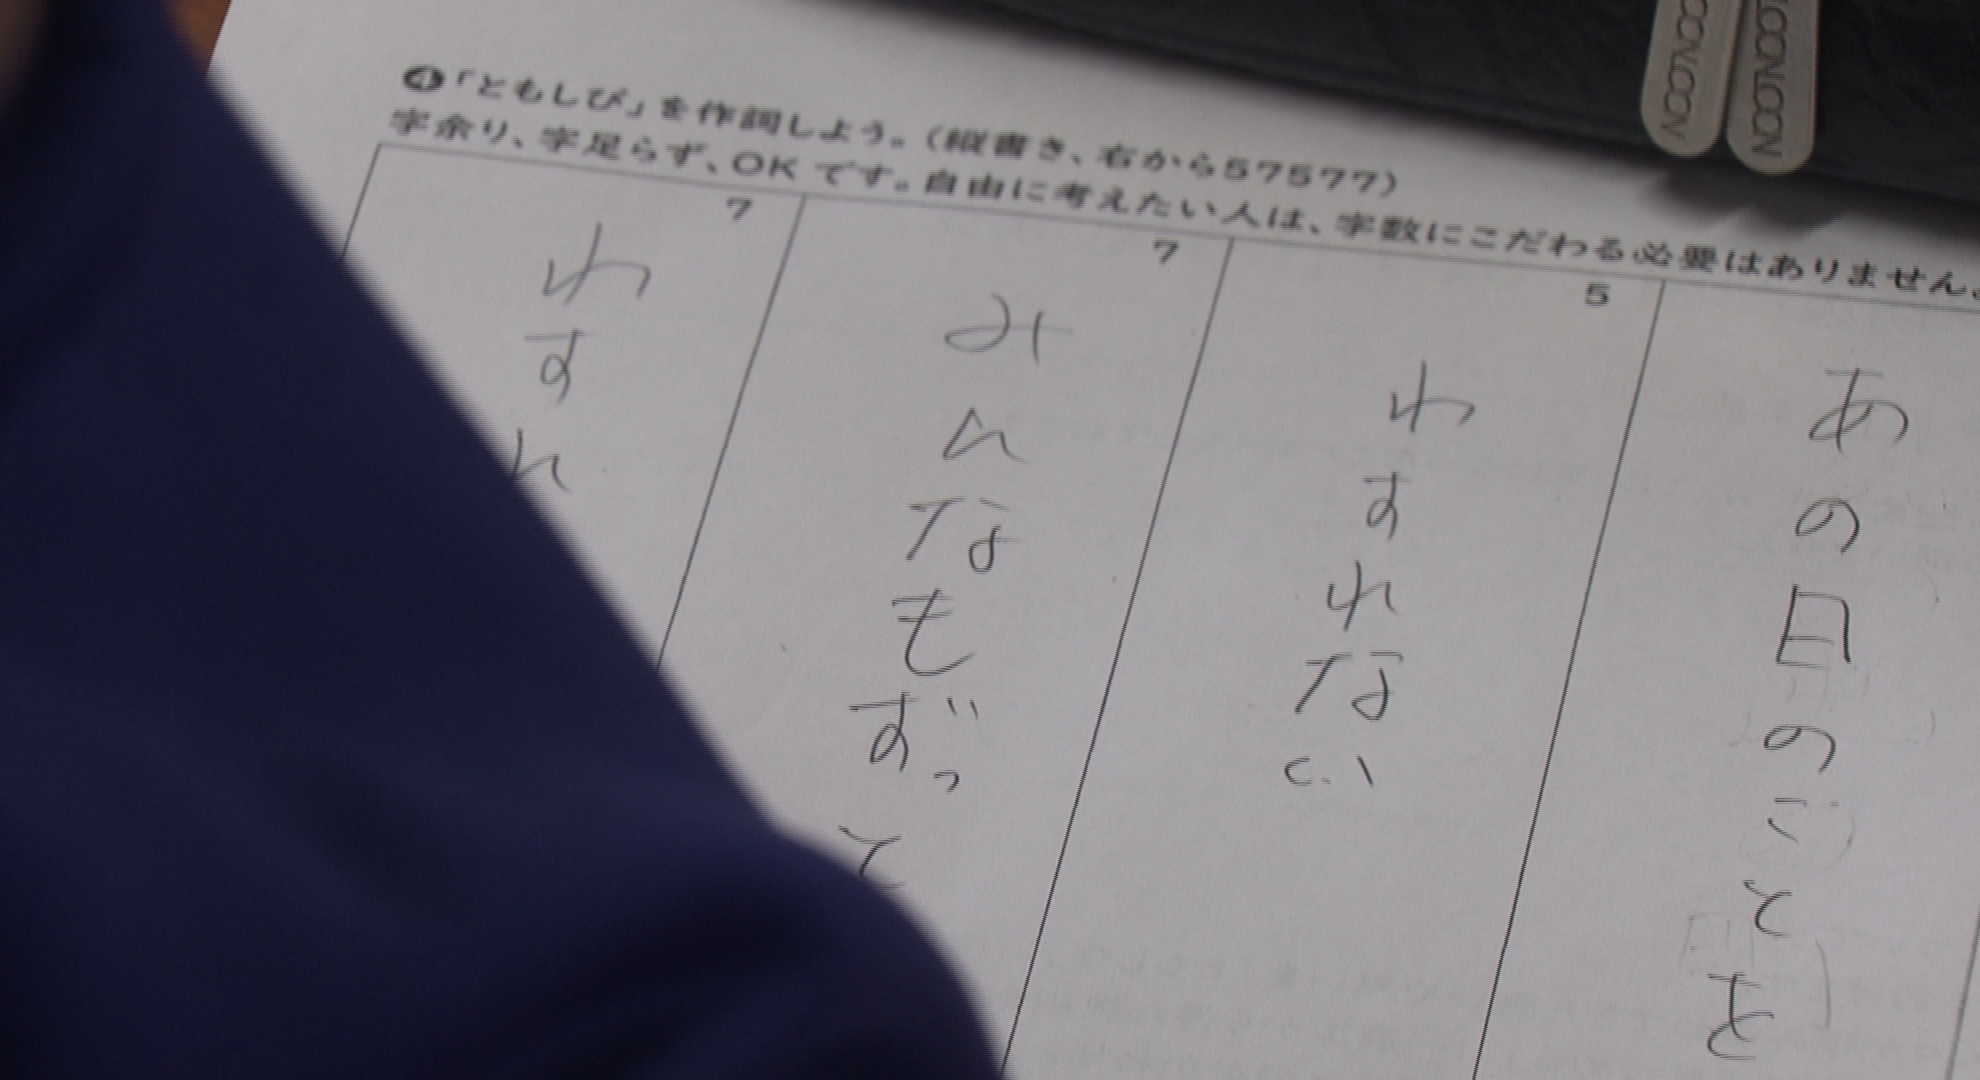 ❹「ともしび」を作詞しよう。(縦書き、右から57577)
字余り、字足らず、OKです。自由に考えたい人は、字数にこだわる必要はありません。
あの日のことを
5
わすれない
7
みんなもずっと
7
わすれ